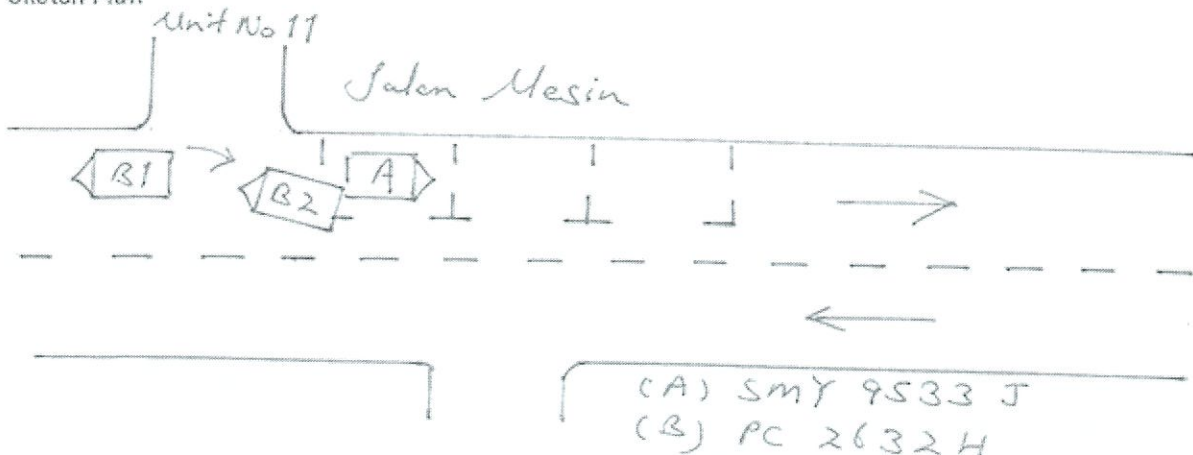 Unit No 11
Jalan Mesin
B1
B2
A
(A) SMY 9533 J
(B) PC 2632H